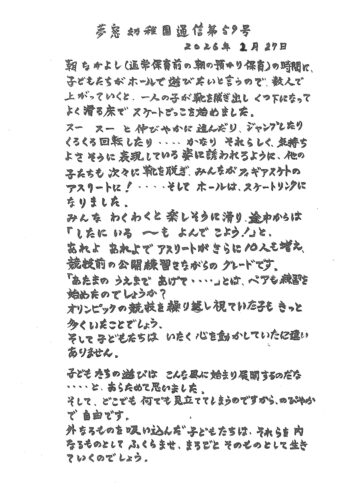 夢窓幼稚園通信第59号
2026年 2月27日
朝なかよし(通常保育前の朝の預かり保育)の時間に、
子どもたちがホールで遊びたいと言うので、数人で
上がっていくと、一人の子が靴を脱ぎ出し くつ下になって
よく滑る床で スケートごっこを始めました。
スー スー と伸びやかに進んだり、ジャンプしたり
くるくる回転したり・・・・ かなり それらしく、気持ち
よさそうに表現している姿に誘われるように、他の
子たちも 次々に靴を脱ぎ、みんながフィギアスケートの
アスリートに!・・・・・そして ホールは、スケートリンクに
なりました。
みんな わくわくと楽しそうに滑り、途中からは
「したに いる 〜も よんで こよう!」と、
あれよ あれよで アスリートが さらに 10人も増え、
競技前の公開練習さながらの グレードです。
「あたまの うえまで あげて・・・・」とは、ペアも練習を
始めたのでしょうか?
オリンピックの競技を繰り返し視ていた子も きっと
多くいたことでしょう。
そして子どもたちは いたく心を動かしていたに違い
ありません。
子どもたちの遊びは こんな風に始まり展開するのだな
・・・・と、あらためて思いました。
そして、どこでも 何でも見立ててしまうのですから、のびやか
で 自由です。
外なるものを吸い込んだ子どもたちは、それらを内
なるものとして ふくらませ、まるごと そのものとして生き
ていくのでしょう。